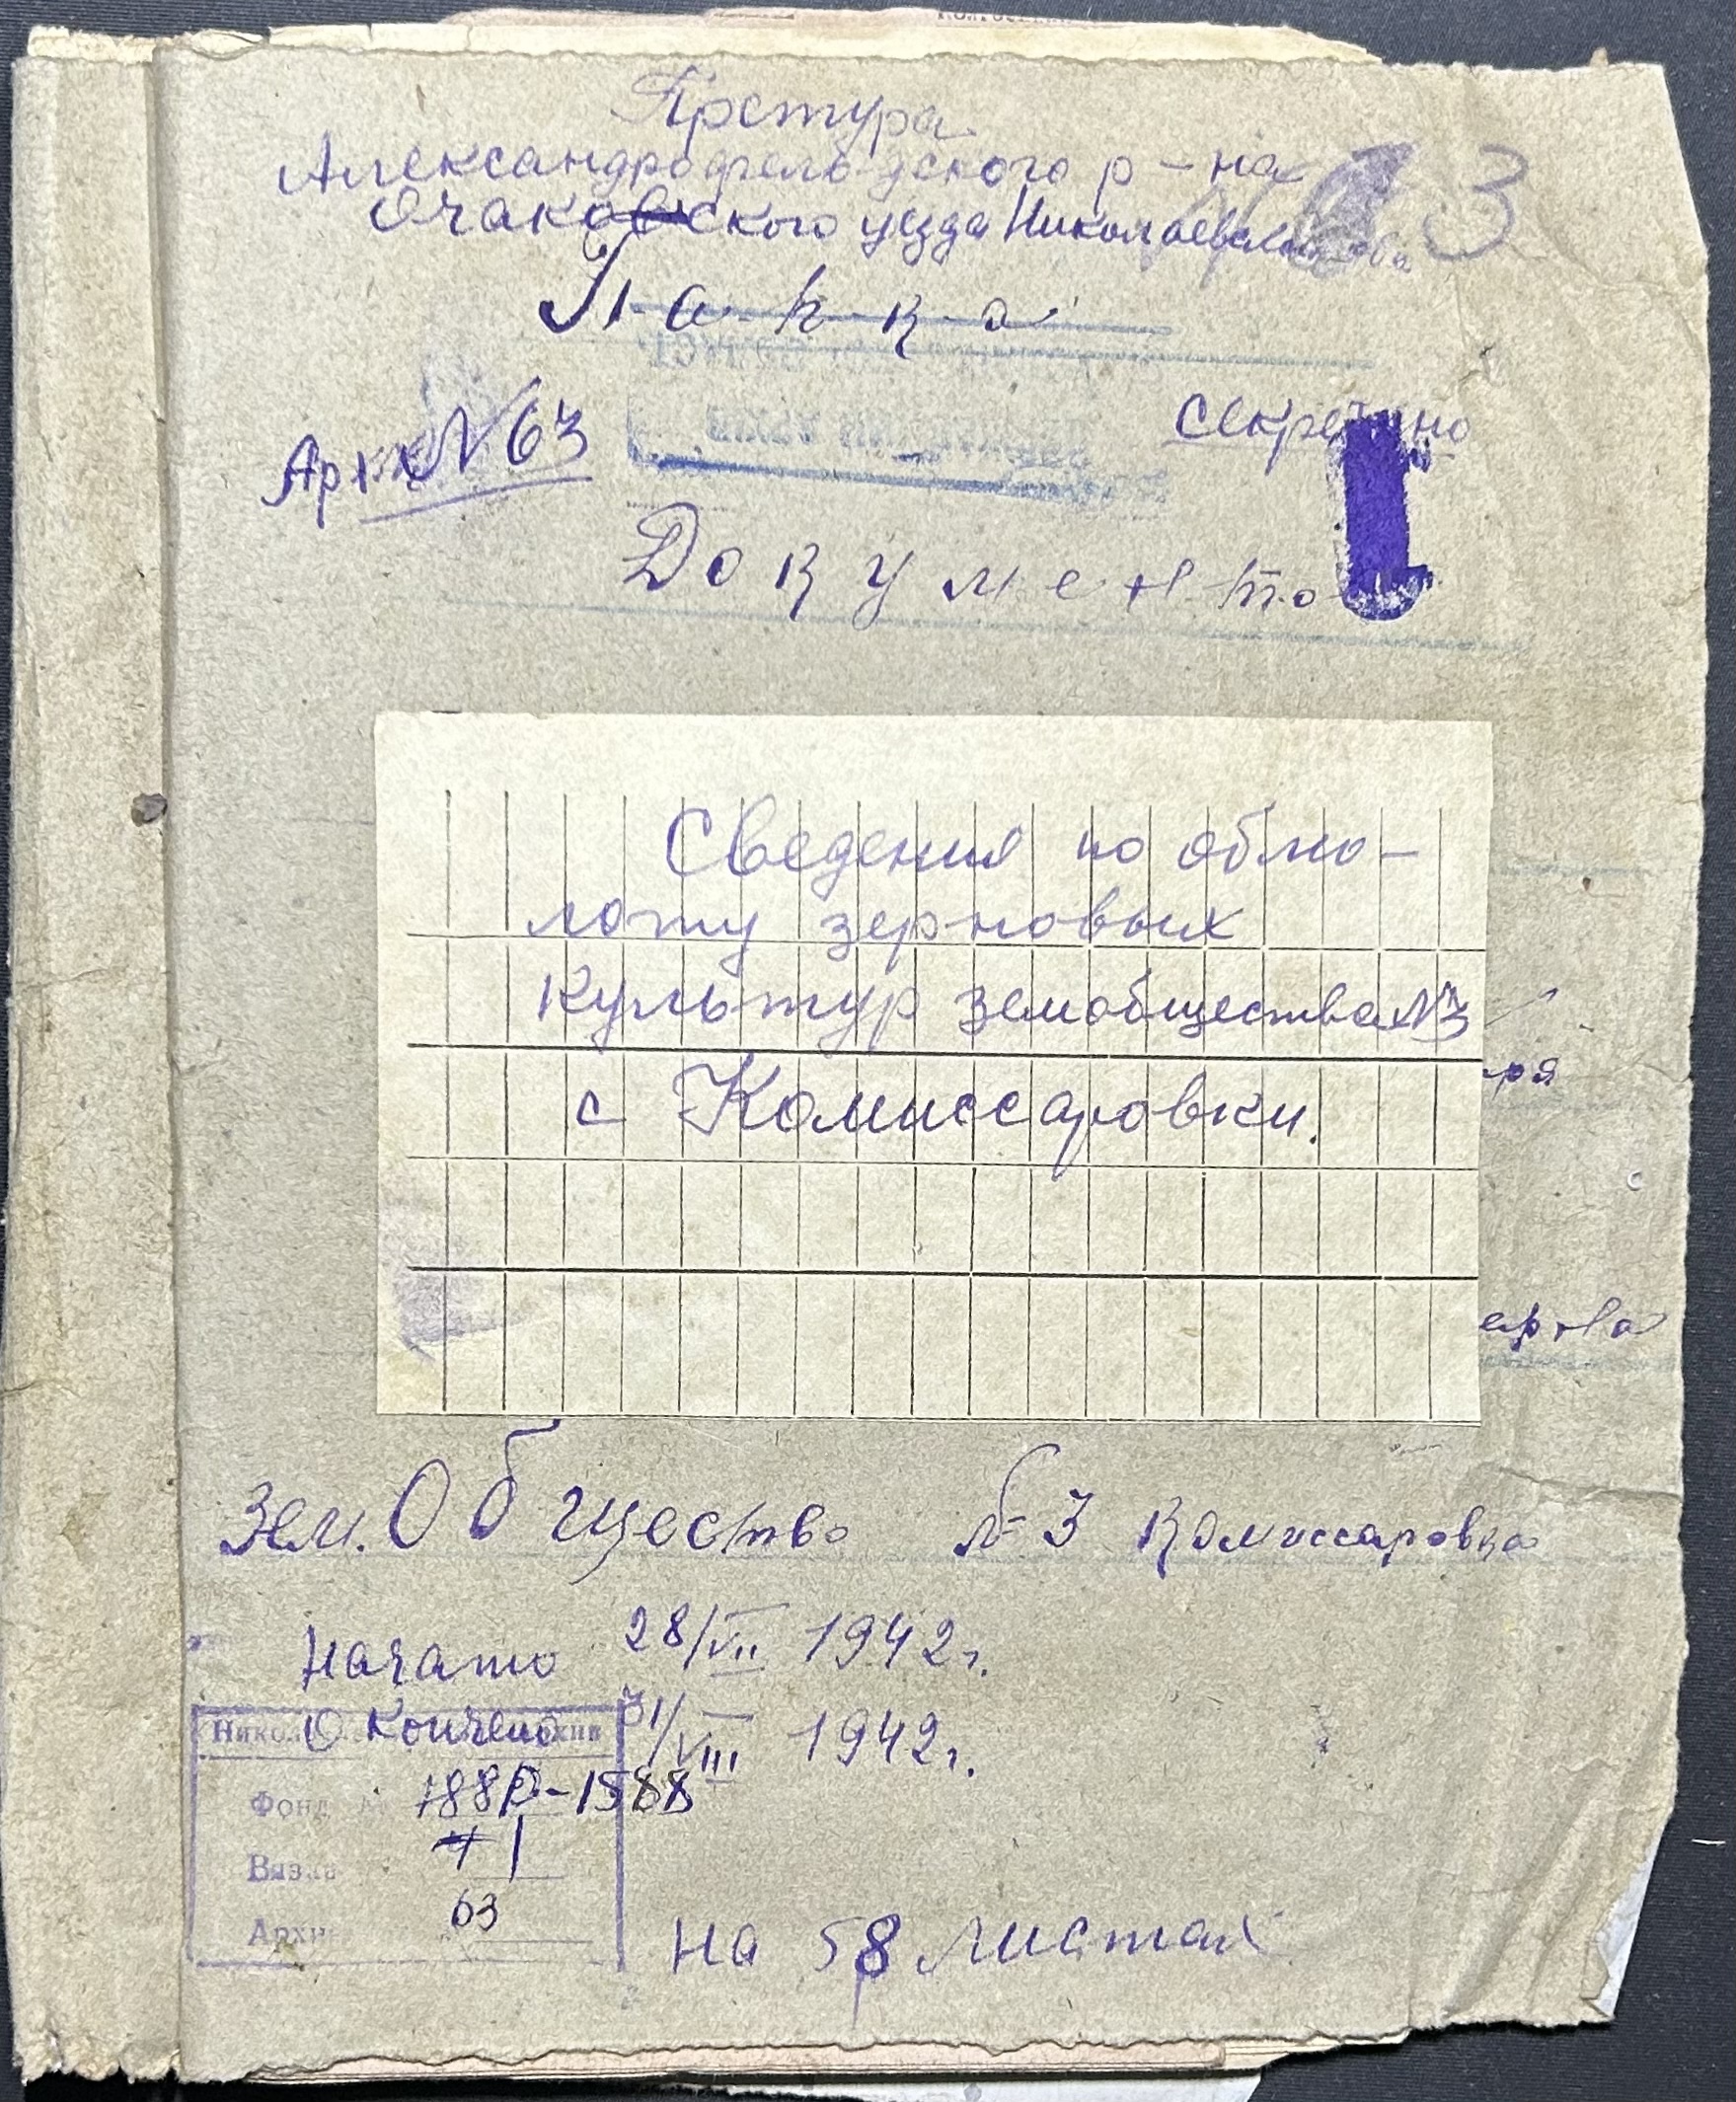 Претура
Александрофельдского р-на
Очаковского уезда
Папка
Арх. № 63
Секретно
Документы
Сведения по обмо-
лоту зерновых
культур земобщества № 3
с Комиссаровки.
ря
ерна
Зем. Общество № 3 Комиссаровка
Начато 28/VII 1942 г.
Окончено 31/VIII 1942 г.
Фонд Р-1588
1
63
На 58 листах